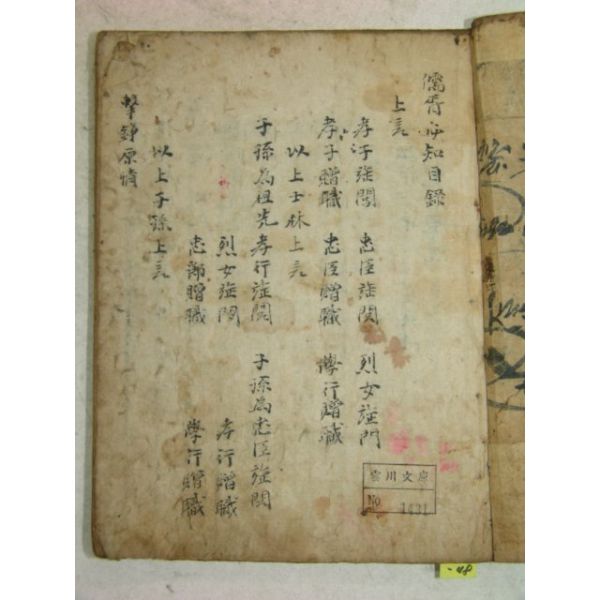 儒胥必知目錄
上言
孝子旌閭 忠臣旌閭 烈女旌門
孝子贈職 忠臣贈職 學行贈職
以上士林上言
子孫為祖先孝行旌閭 子孫為忠臣旌閭
烈女旌閭 孝行贈職
忠節贈職 學行贈職
以上子孫上言
擊錚原情
雲川文庫
No. 1431
-48